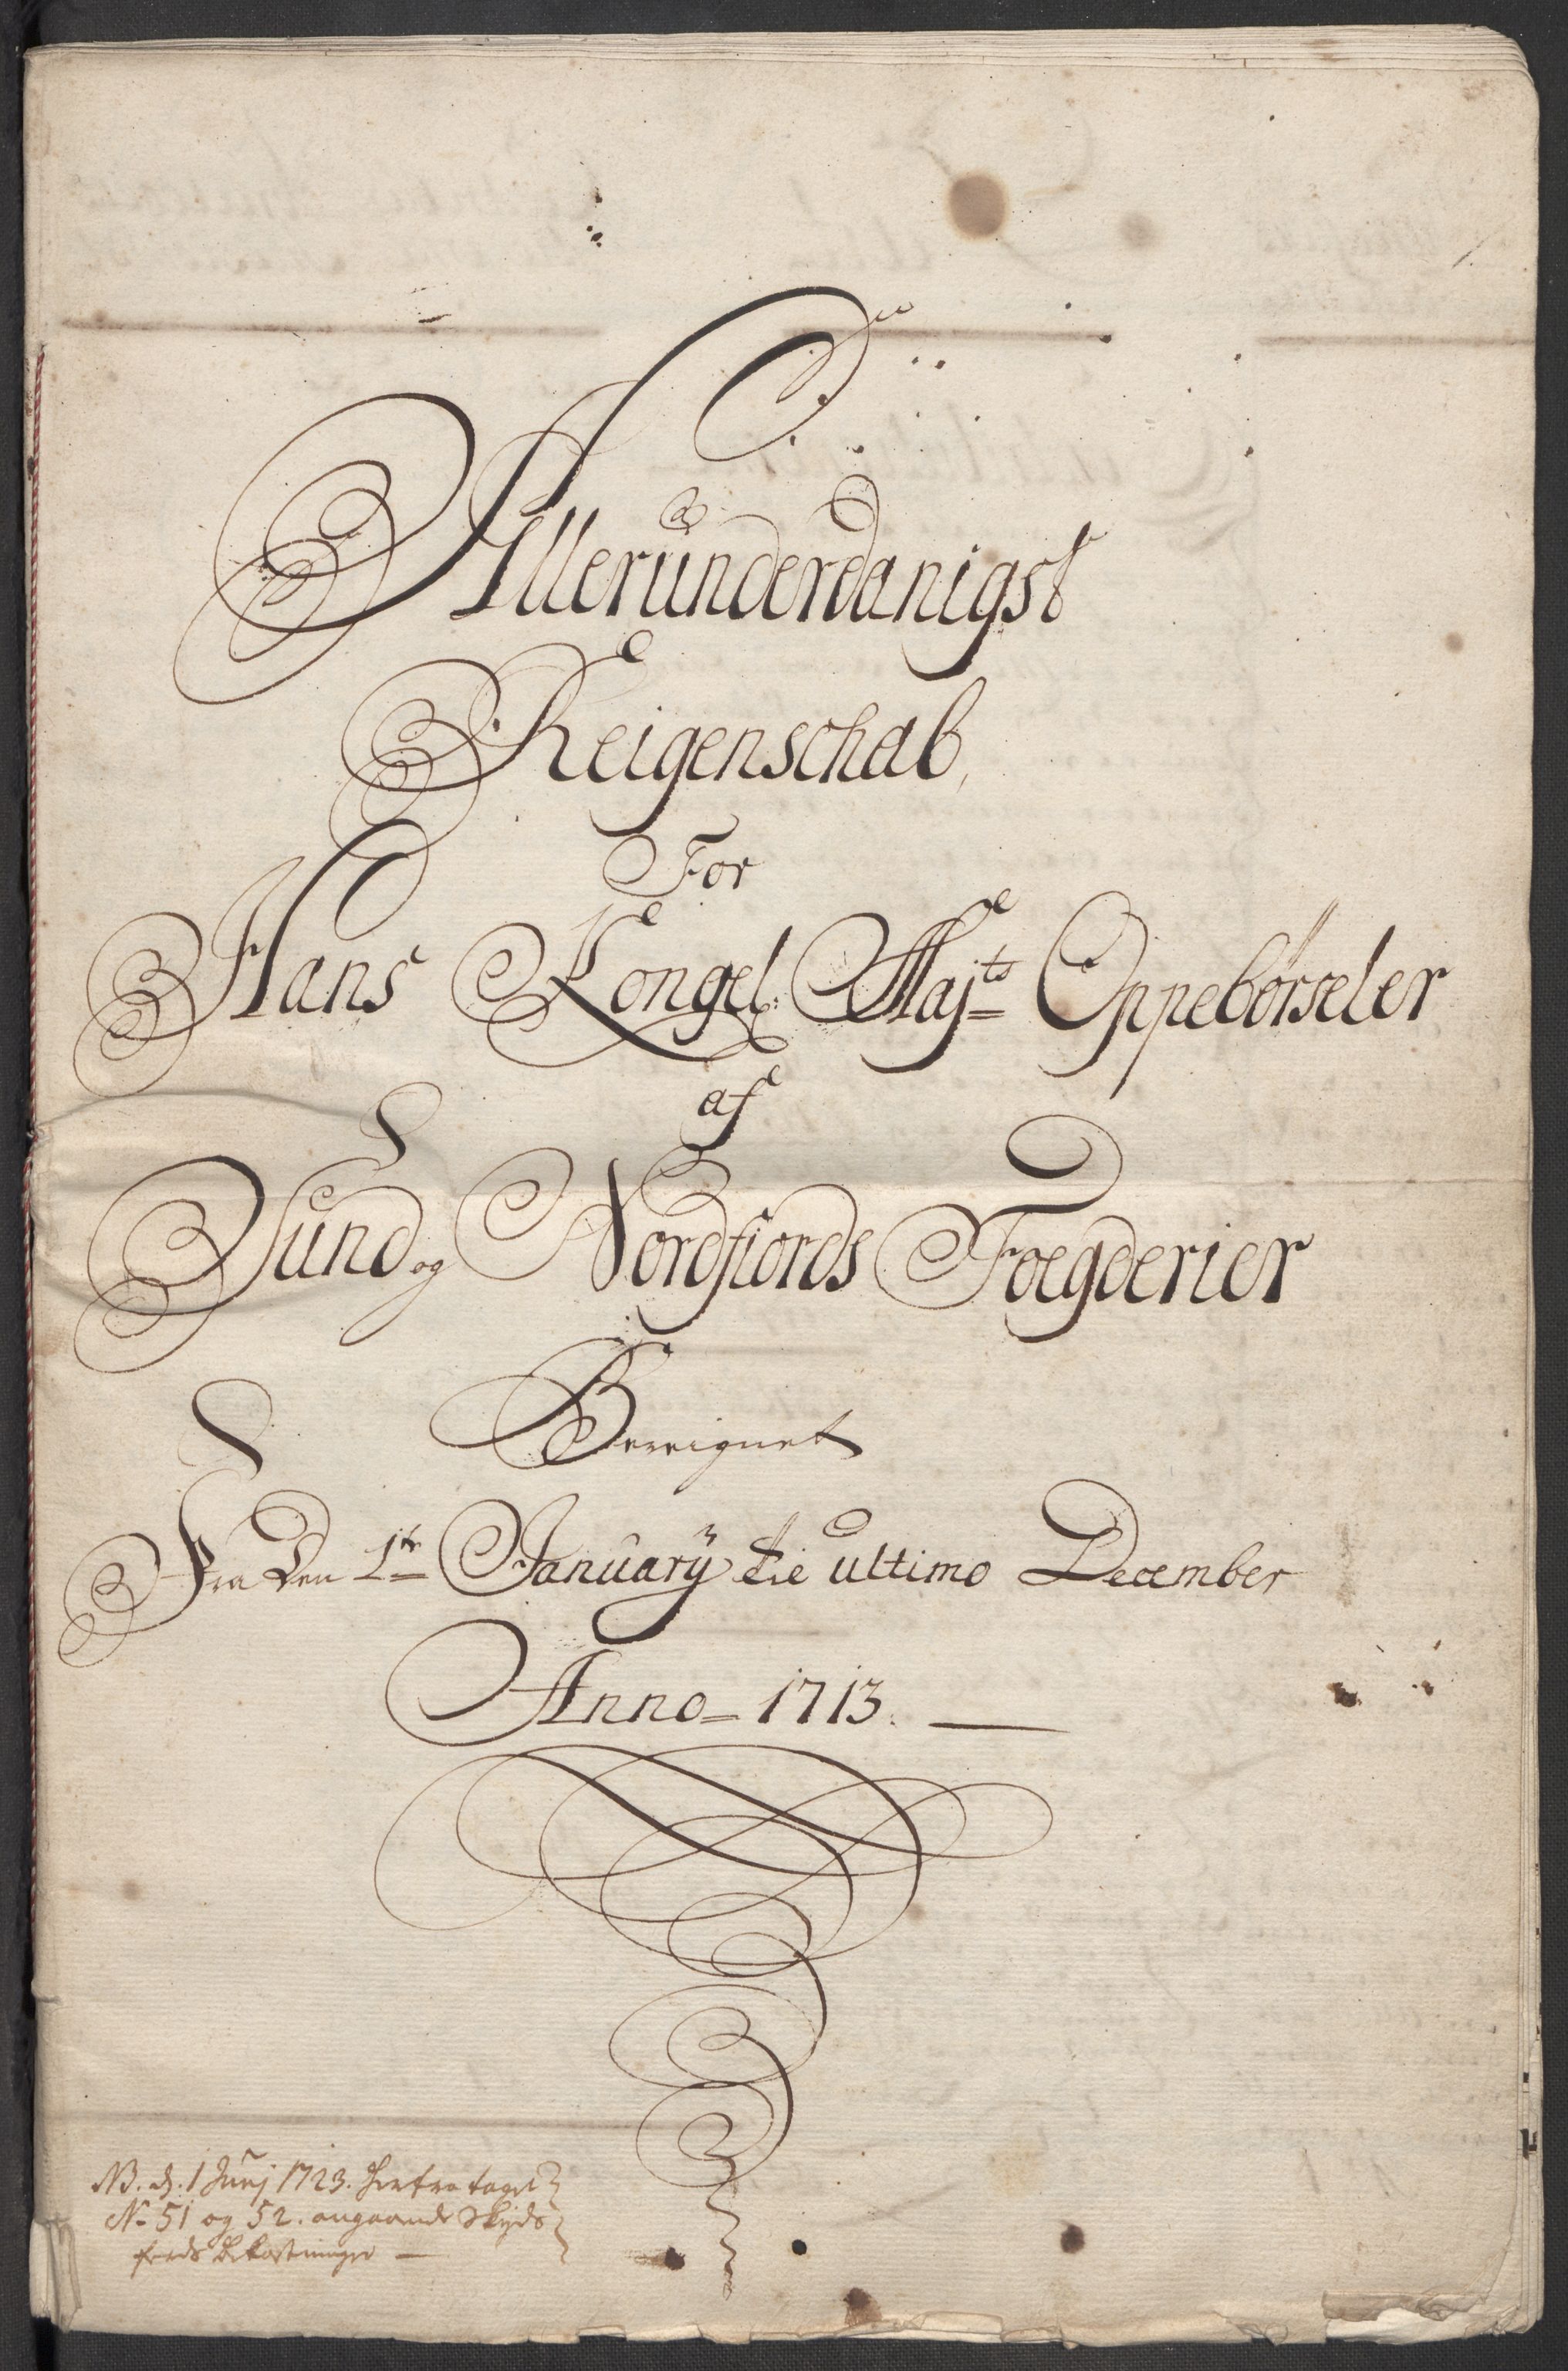 Alleründerdanigst
Reigenschab,
For
Hans Kongel: Majts Oppebörseler
af
Sünd og Nordfiords Foegderier
Bereignet
Fra den 1te Januarÿ til ultimo December
Anno 1713.
NB. d. 1 Junj 1723. herfra taget
No 51 og 52. angaaende Skyds
ferds bekostninger —